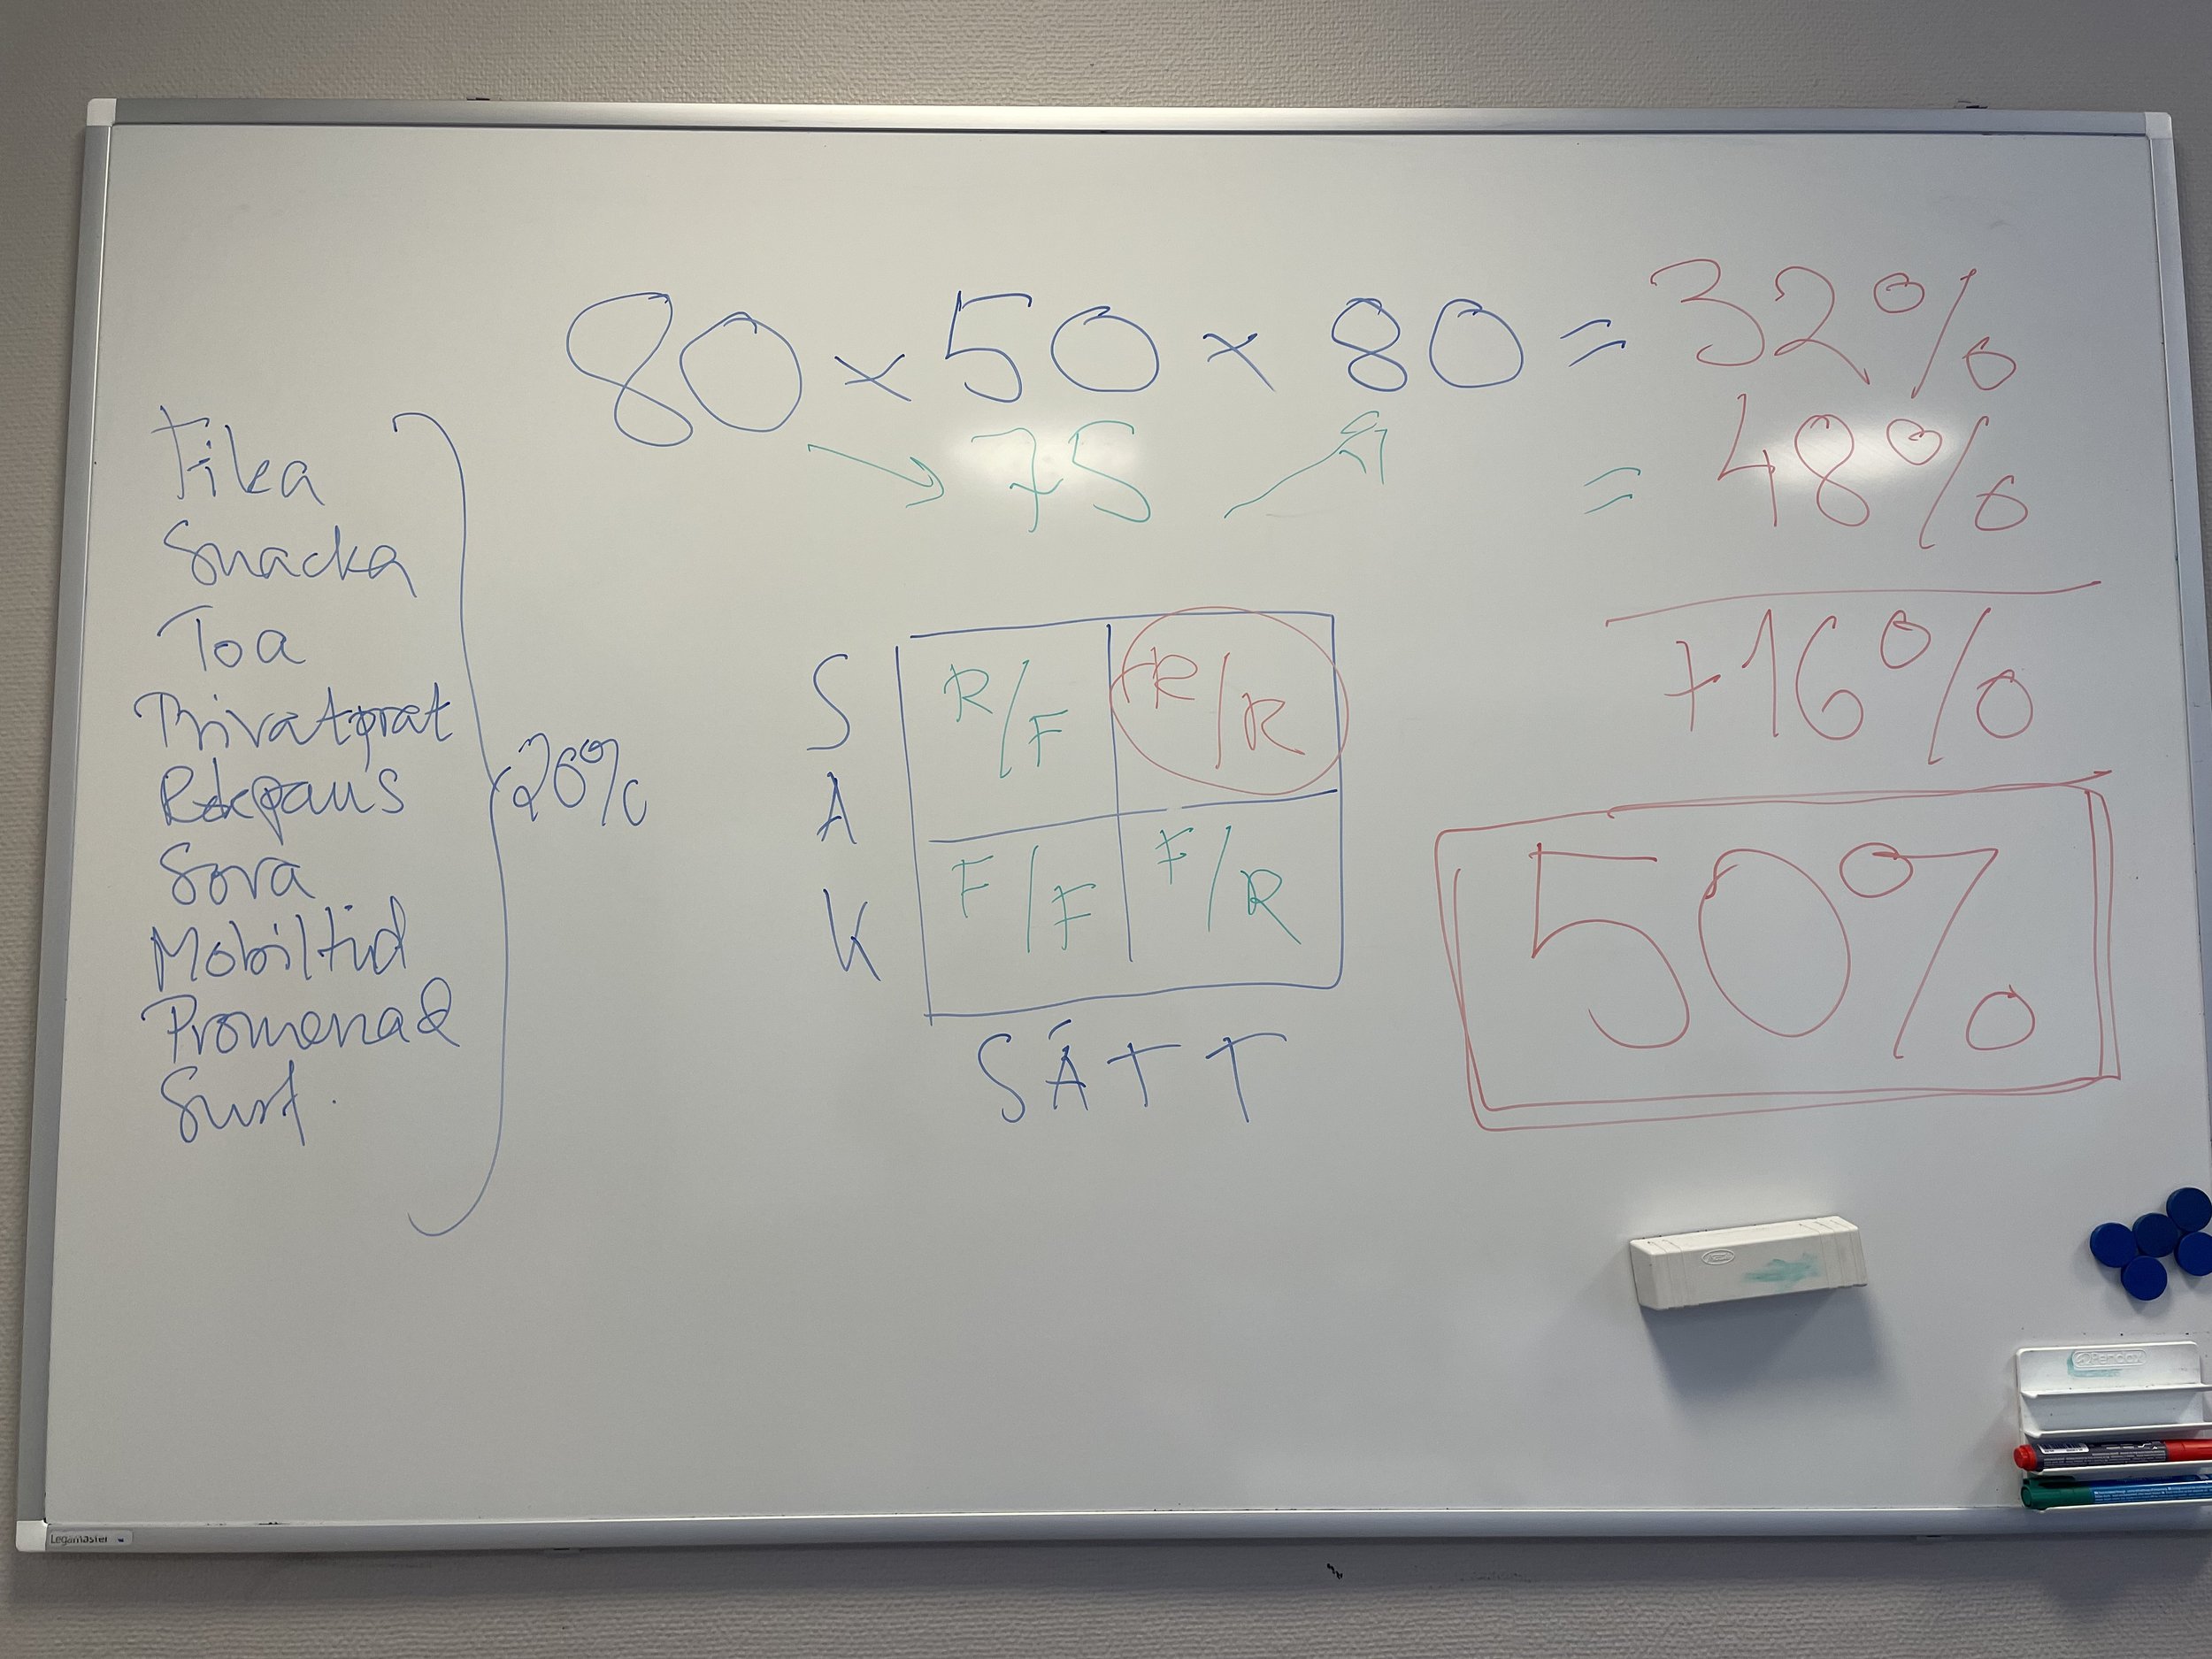 80 x 50 x 80 = 32%
→ 75 ↗ = 48%
+16%
50%
Fika
Snacka
Toa
Privatprat
Rökpaus
Sova
Mobiltid
Promenad
Surf.
20%
S
A
K
R/F
R/R
F/F
F/R
SÄTT
Legamaster
Pendax